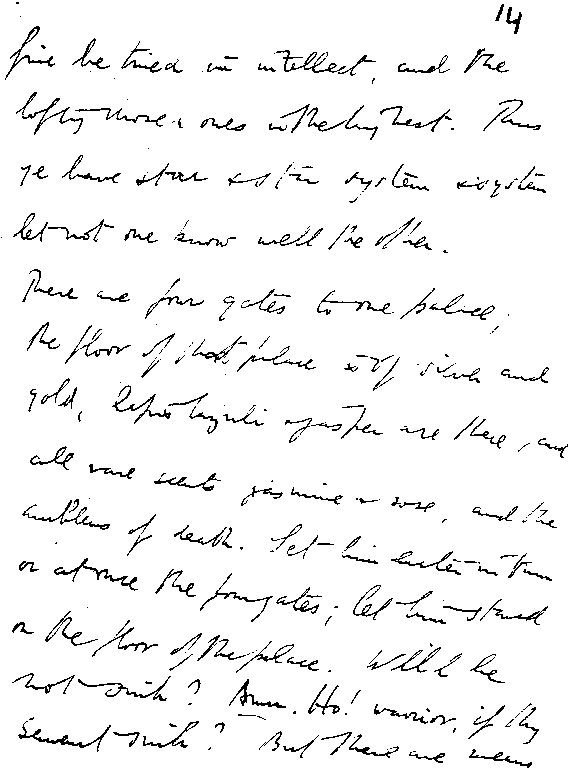 14
fine be tried in intellect, and the
lofty chosen ones in the highest. Thus
ye have star & star system & system
let not one know well the other.
There are four gates to one palace;
the floor of that palace is of silver and
gold, lapis lazuli & jasper are there, and
all rare scents jasmine & rose, and the
emblems of death. Let him enter in turn
or at once the four gates; let him stand
on the floor of the palace. Will he
not sink? Amn. Ho! warrior, if thy
servant sink? But there are means